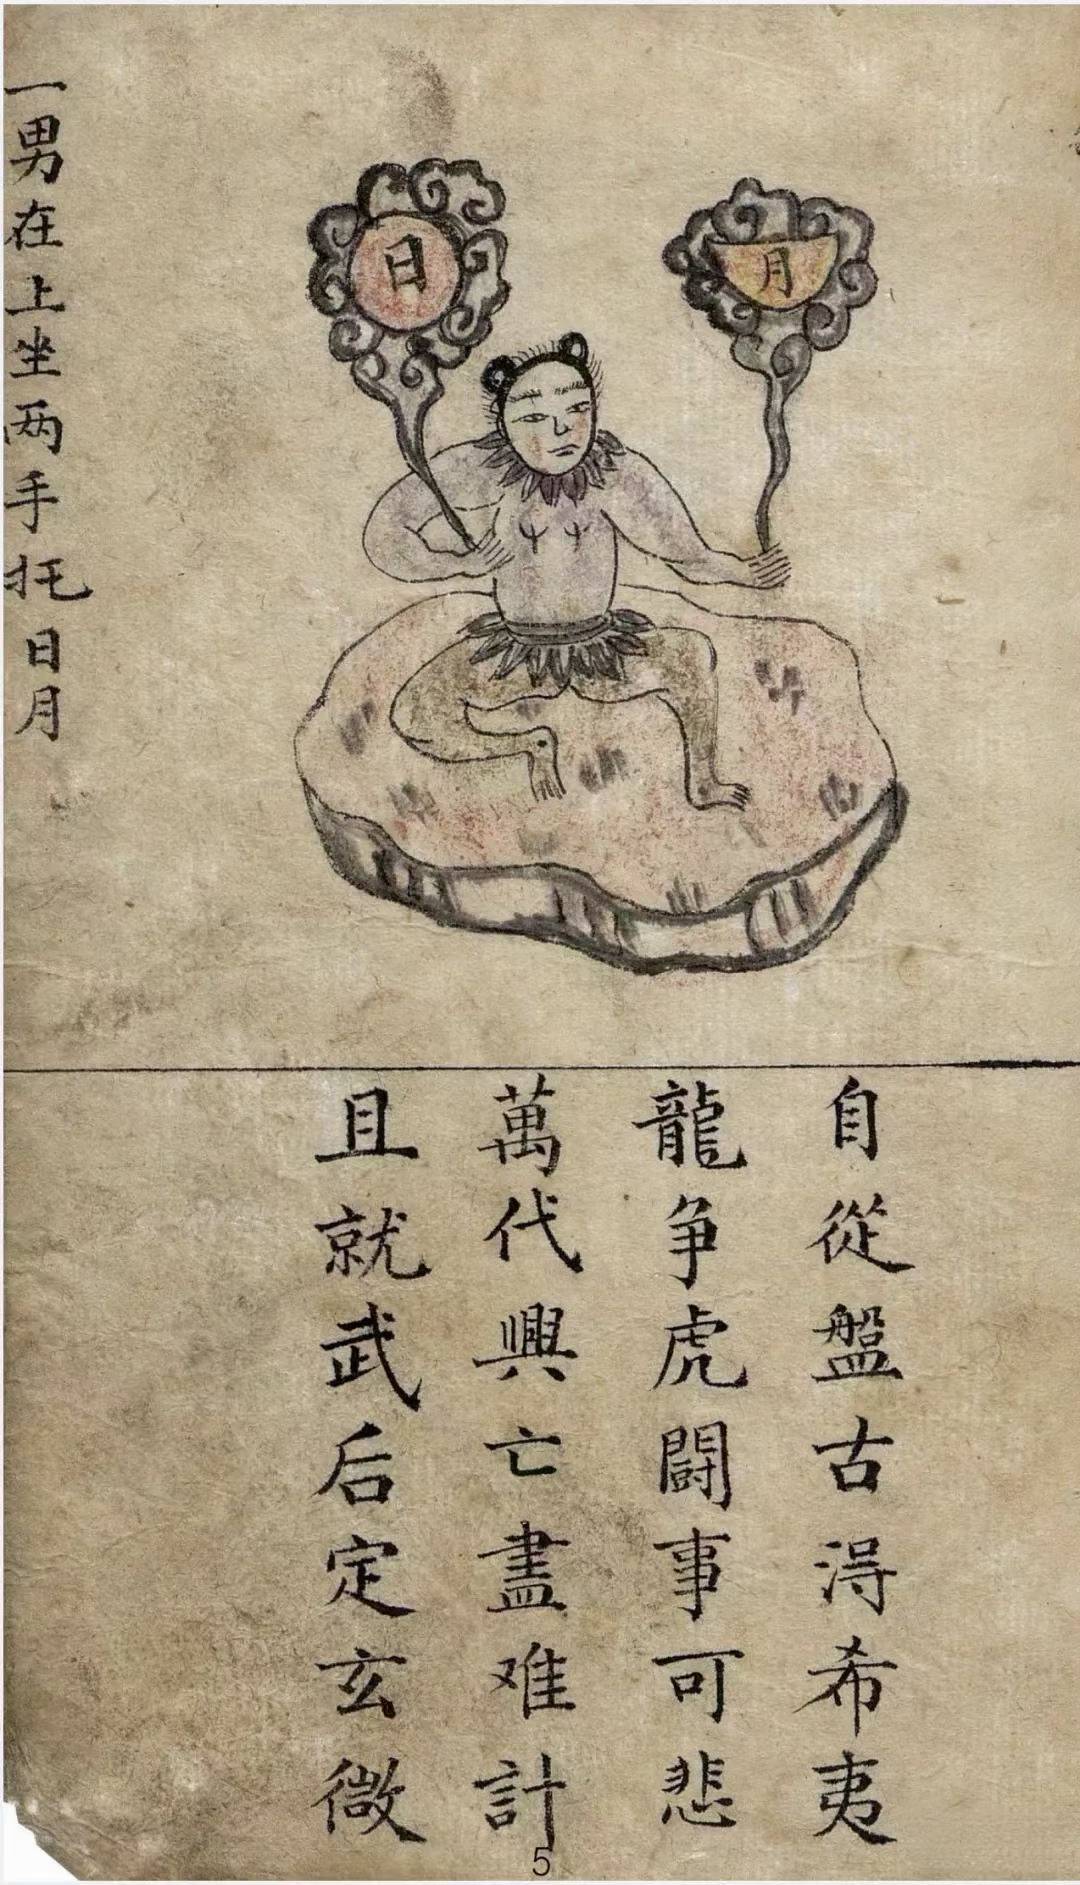 一男在上坐两手托日月
日
月
自從盤古淂希夷
龍争虎闘事可悲
萬代興亡盡难計
且就武后定玄微
5